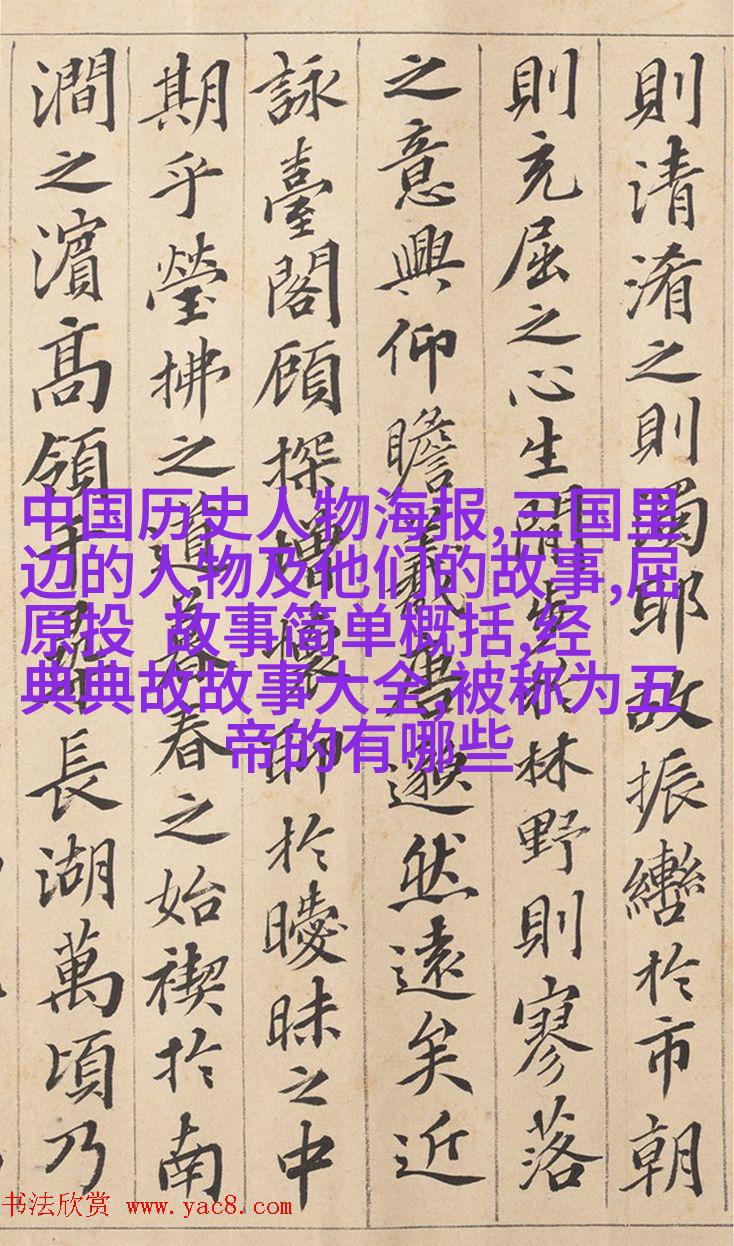 則清淆之則濁耶故振轡於市朝
則充屈之心生閒步於林野則寥落
之意興仰瞻羲唐邈然遠矣近
詠臺閣顧探增懷聊於曖昧之中
期乎瑩拂之道暮春之始禊於南
澗之濱高領千尋長湖萬頃乃
中国历史人物海报,三国里
边的人物及他们的故事,屈
原投 故事简单概括,经
典典故故事大全,被称为五
帝的有哪些
书法欣赏 www.yac8.com